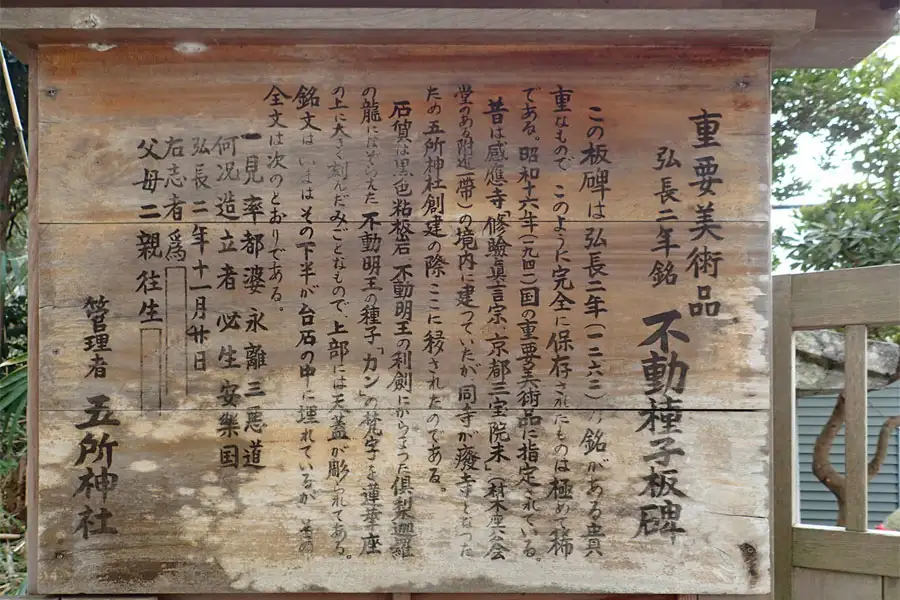 重要美術品
弘長二年銘 不動種子板碑
この板碑は弘長二年(一二六二)の銘がある貴
重なもので このように完全に保存されたものは極めて稀
である。昭和十六年(一九四一)国の重要美術品に指定されている。
昔は感應寺「修驗眞言宗、京都三宝院末」(材木座公会
堂のある附近一帯)の境内に建っていたが同寺が廢寺となった
ため五所神社創建の際ここに移されたのである。
石質は黒色粘板岩、不動明王の利劍にからまつた倶梨迦羅
の龍になぞらえた 不動明王の種子「カン」の梵字を蓮華座
の上に大きく刻んだみごとなもので、上部には天蓋が彫られてある。
銘文は いまはその下半が台石の中に埋れているが その
全文は次のとおりである。
一見率都婆 永離三悪道
何況造立者 必生安樂国
弘長二年十一月廿日
右志者爲
父母二親往生
管理者 五所神社